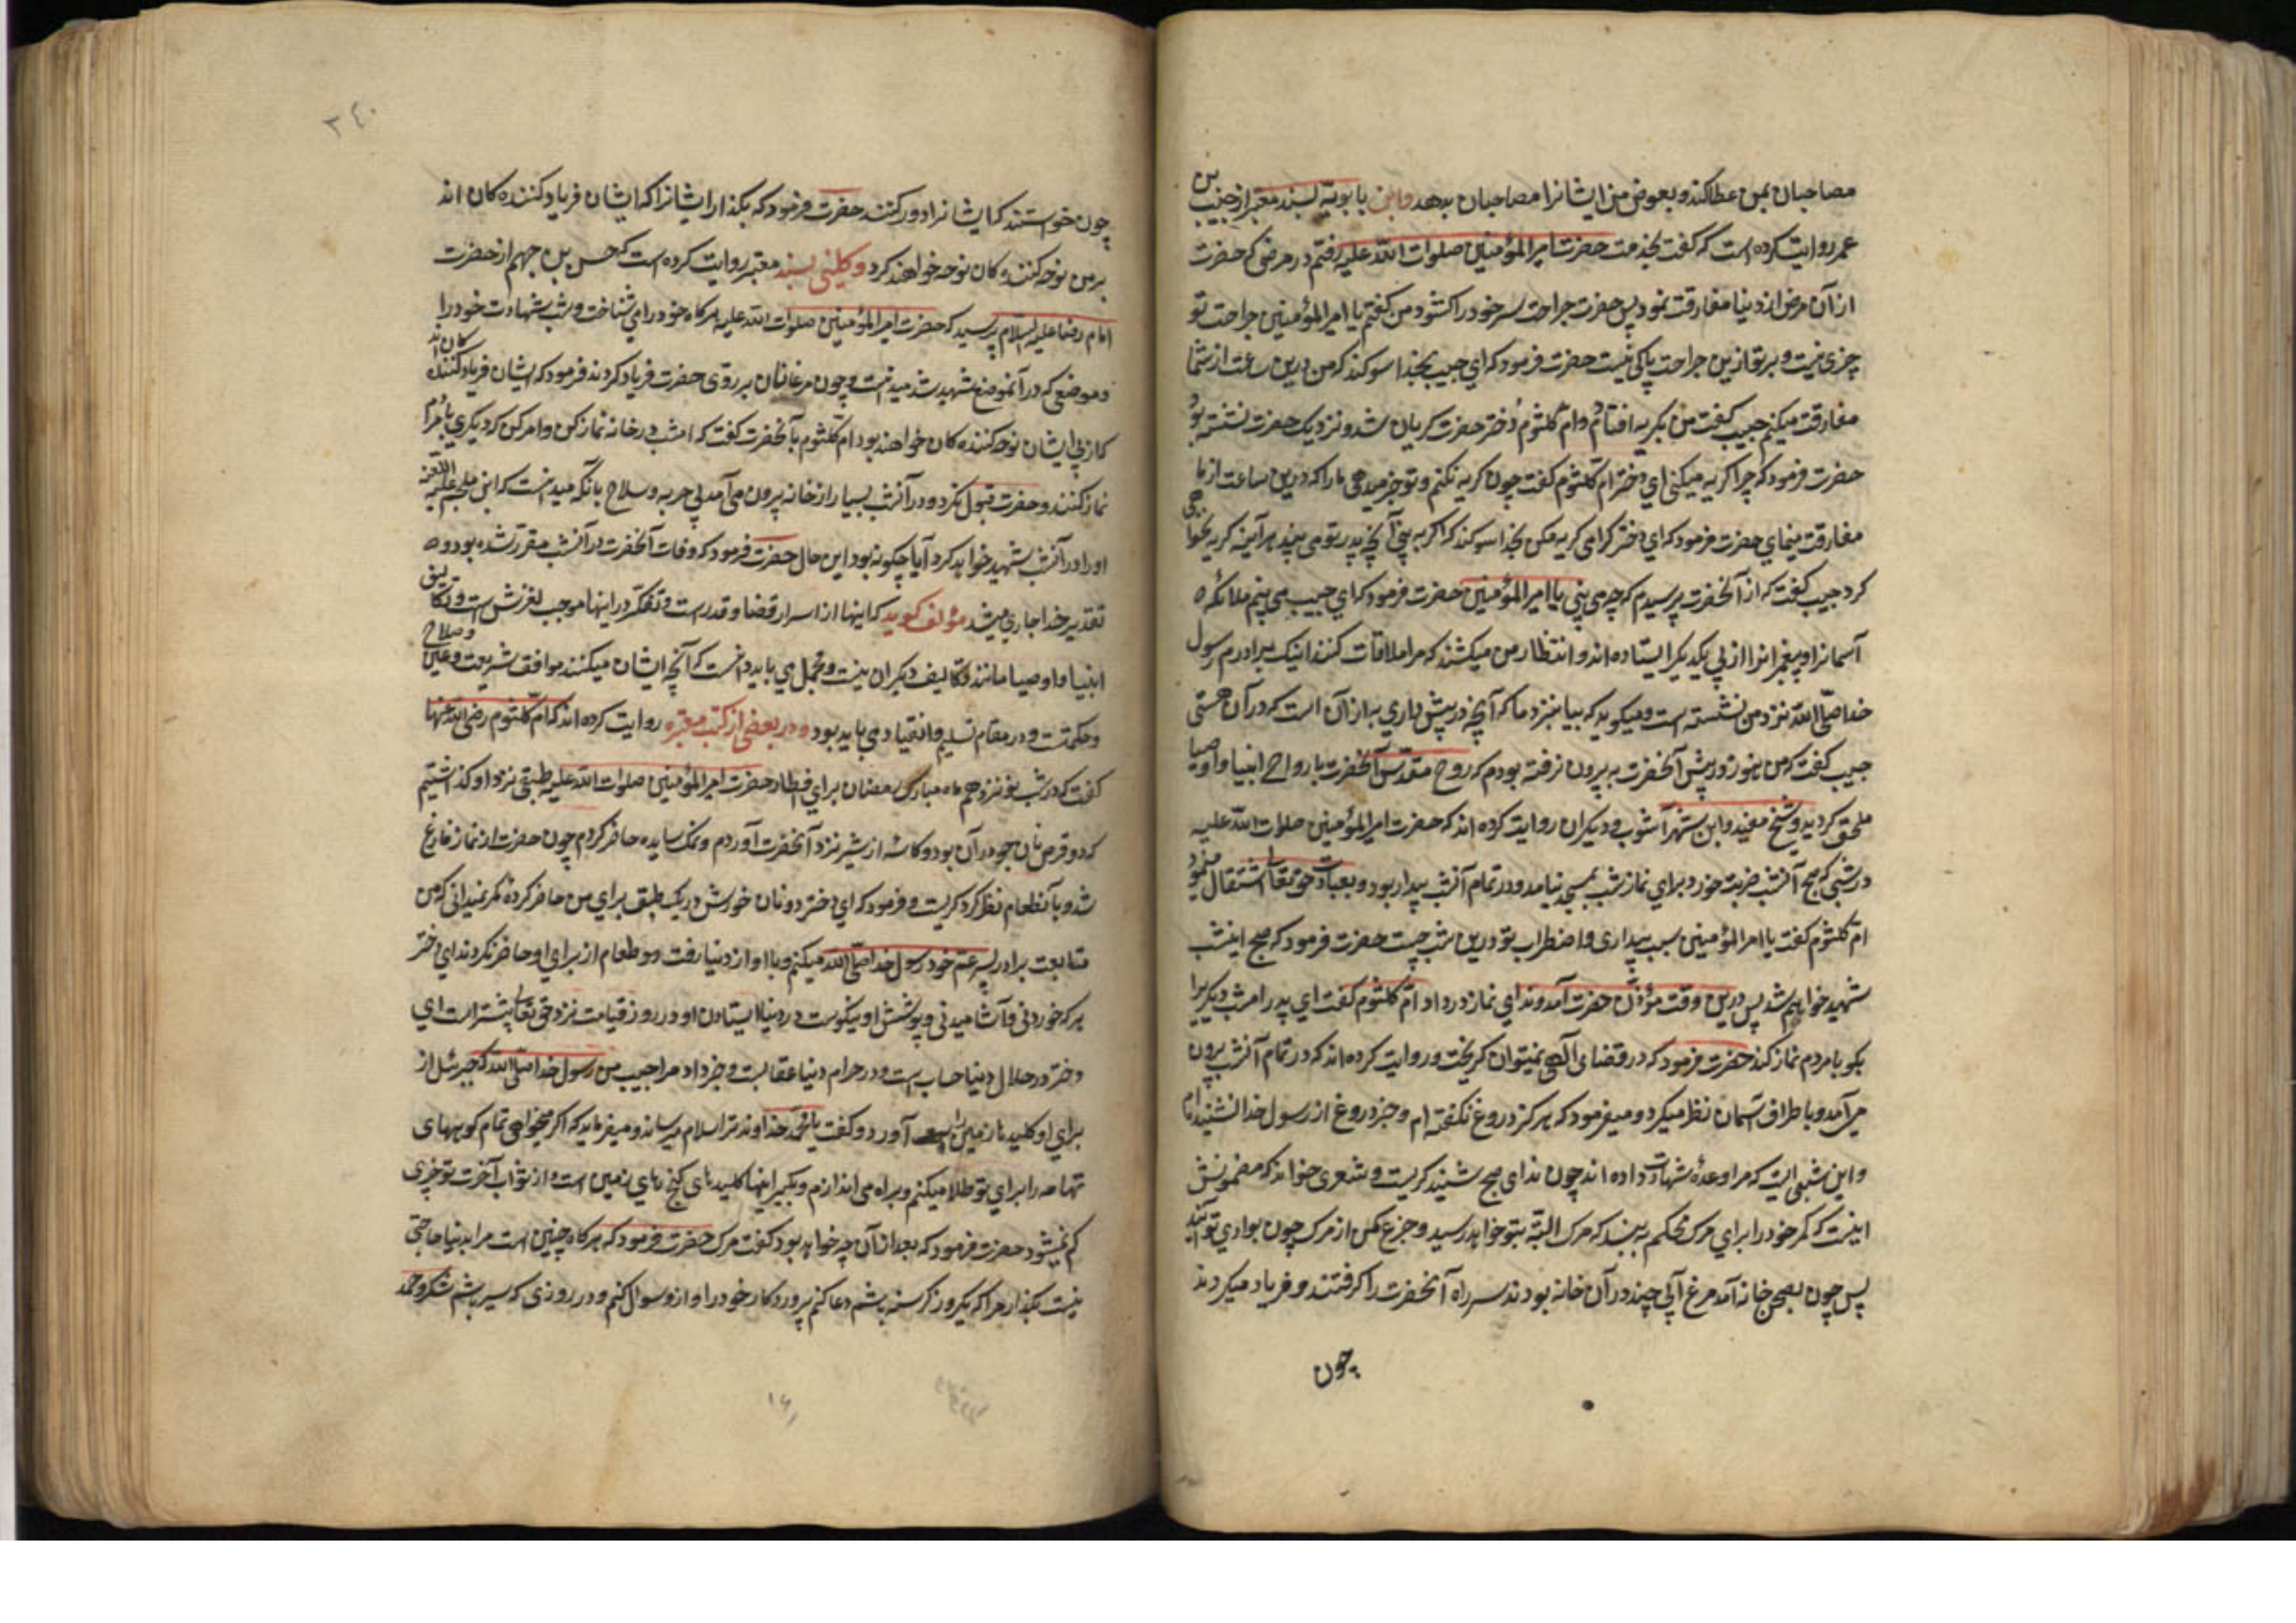 مصاحبان بمن عطا کند و بعوض من ایشانرا مصاحبان بدهد وابن بابویه بسند معتبر از حبیب بن
عمرو روایت کرده است که گفت بخدمت حضرت امیرالمؤمنین صلوات الله علیه رفتم در مرضی که حضرت
از آن مرض از دنیا مفارقت نمود پس حضرت جراحت سر خود را کشود من گفتم یا امیرالمؤمنین جراحت تو
چزی نیست و بر تو ازین جراحت باکی نیست حضرت فرمود که ای حبیب بخدا سوکند که من درین ساعت از شما
مفارقت میکنم حبیب گفت من بگریه افتادم و ام کلثوم دختر حضرت گریان شد و نزدیک حضرت نشسته بود
حضرت فرمود که چرا گریه میکنی ای دختر ام کلثوم گفت چون گریه نکنم و تو خبر میدهی ما را که درین ساعت از ما
مفارقت مینمای حضرت فرمود که ای دختر گرامی گریه مکن بخدا سوکند که اگر به بینی آنچه پدر تو می بیند هر آینه گریه نخواهی
کرد حبیب گفت که از آنحضرت پرسیدم که چه می بینی یا امیرالمؤمنین حضرت فرمود که ای حبیب می بینم ملائکه
آسمانرا و پیغمبرانرا از پی یکدیگر ایستاده اند و انتظار من میکشند که مرا ملاقات کنند اینک برادرم رسول
خدا صلی الله نزد من نشسته است و میکوید که بیا بنزد ما که آنچه در پیش داری به از آن است که در آن هستی
حبیب گفت که من هنوز از پیش آنحضرت به بیرون نرفته بودم که روح مقدس آنحضرت با رواح انبیا و اوصیا
ملحق کردید و شیخ مفید وابن شهر آشوب و دیگران روایت کرده اند که حضرت امیرالمؤمنین صلوات الله علیه
در شبی که صبح آنشب ضربت خورد برای نماز شب بمسجد نیامد و در تمام آنشب بیدار بود و بعبادت حق تعالی اشتغال نمود
ام کلثوم گفت یا امیرالمؤمنین سبب بیداری و اضطراب تو درین شب چیست حضرت فرمود که صبح اینشب
شهید خواهم شد پس درین وقت مؤذن حضرت آمد و ندای نماز در داد ام کلثوم گفت ای پدر امشب دیگریرا
بگو با مردم نماز کند حضرت فرمود که در قضای الهی نمیتوان گریخت و روایت کرده اند که در تمام آنشب بیرون
می آمد و باطراف آسمان نظر میکرد و میفرمود که هرگز دروغ نگفته ام و خبر دروغ از رسول خدا نشنیده ام
واین شبی است که مرا وعده شهادت داده اند چون ندای صبح شنید گریست و شعری خواند که مضمونش
اینست که کمر خود را برای مرگ محکم به بند که مرگ البته بتو خواهد رسید و جزع مکن از مرگ چون بوادی تو آید
پس چون بصحن خانه آمد مرغ آبی چند در آن خانه بودند سر راه آنحضرت را گرفتند و فریاد میکردند
چون
٣٤٠
چون خواستند که ایشانرا دور کنند حضرت فرمود که بگذار ایشانرا که ایشان فریاد کننده کان اند
بر من نوحه کننده کان نوحه خواهند کرد و کلینی بسند معتبر روایت کرده است که حسن بن جهم از حضرت
امام رضا علیه السلام پرسید که حضرت امیرالمؤمنین صلوات الله علیه هرگاه خود را می شناخت و شب شهادت خود را
و موضعی که در آنموضع شهید شد میدانست و چون مرغابیان بر روی حضرت فریاد کردند فرمود که ایشان فریاد کننده کان اند
که از پی ایشان نوحه کننده کان خواهند بود ام کلثوم بآنحضرت گفت که امشب در خانه نماز کن و امر کن که دیگری با مردم
نماز کنند و حضرت قبول نکرد و در آنشب بسیار از خانه بیرون می آمد بی حربه و سلاح بانکه میدانست که ابن ملجم علیه اللعنه
او را در آنشب شهید خواهد کرد آیا چگونه بود این حال حضرت فرمود که وفات آنحضرت در آنشب مقرر شده بود و
تقدیر خدا جاری میشد مؤلف گوید که اینها از اسرار قضا و قدرست و تفکر در اینها موجب لغزش است و تکالیف
انبیا و اوصیا مانند تکالیف دیگران نیست و مجمل می باید دانست که آنچه ایشان میکنند موافق شریعت و عین صلاح
و حکمتست و در مقام تسلیم و انقیاد می باید بود و در بعضی از کتب معتبره روایت کرده اند که ام کلثوم رضی الله عنها
گفت که در شب نوزدهم ماه مبارک رمضان برای افطار حضرت امیرالمؤمنین صلوات الله علیه طبقی نزد او گذاشتیم
که دو قرص نان جو در آن بود و کاسه از شیر نزد آنحضرت آوردم و نمک سایده حاضر کردم چون حضرت از نماز فارغ
شد و بآنطعام نظر کرد گریست و فرمود که ای دختر دو نان خورش در یک طبق برای من حاضر کرده مگر نمیدانی که من
متابعت برادر پسر عم خود رسول خدا صلی الله میکنم و با او از دنیا رفت دو طعام از برای او حاضر نکردند ای دختر
هر که خوردنی و آشامیدنی و پوشش او نیکوست در دنیا ایستادن او در روز قیامت نزد حق تعالی بیشتر است ای
دختر در حلال دنیا حساب است و در حرام دنیا عقابست و خبر داد مرا حبیب من رسول خدا صلی الله که جبرئیل از
برای او کلیدها زمین آورد و گفت یا محمد خداوند ترا سلام میرساند و میفرماید که اگر میخواهی تمام کوههای
تهامه را برای تو طلا میکنم و براه می اندازم و بگیر اینها کلیدهای گنج های زمین است و از ثواب آخرت تو چزی
کم نمیشود حضرت فرمود که بعد از آن چه خواهد بود گفت مرگ حضرت فرمود که هرگاه چنین است مرا بدنیا حاجتی
نیست بگذار مرا که یکروز گرسنه باشم دعا کنم پروردگار خود را و ازو سوال کنم و در روزی که سیر باشم شکر و حمد